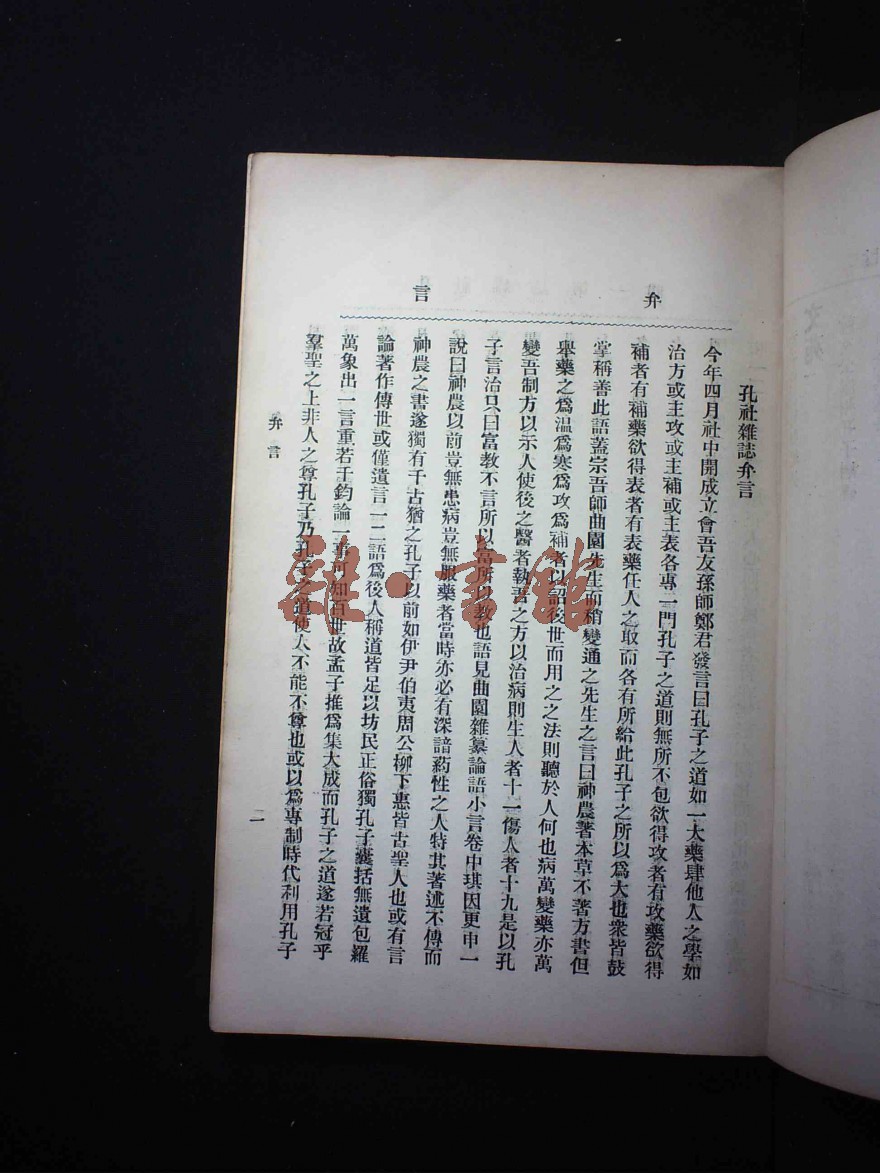 弁言
孔社雜誌弁言
今年四月社中開成立會吾友孫師鄭君發言曰孔子之道如一大藥肆他人之學如
治方或主攻或主補或主表各專一門孔子之道則無所不包欲得攻者有攻藥欲得
補者有補藥欲得表者有表藥任人之取而各有所給此孔子之所以爲大也衆皆鼓
掌稱善此語蓋宗吾師曲園先生而稍變通之先生之言曰神農著本草不著方書但
舉藥之爲温爲寒爲攻爲補者以詔後世而用之之法則聽於人何也病萬變藥亦萬
變吾制方以示人使後之醫者執吾之方以治病則生人者十一傷人者十九是以孔
子言治只曰富教不言所以富所以教也語見曲園雜纂論語小言卷中琪因更申一
說曰神農以前豈無患病豈無服藥者當時亦必有深諳葯性之人特其著述不傳而
神農之書遂獨有千古猶之孔子以前如伊尹伯夷周公柳下惠皆古聖人也或有言
論著作傳世或僅遺言一二語爲後人稱道皆足以坊民正俗獨孔子囊括無遺包羅
萬象出一言重若千鈞論一事可知百世故孟子推爲集大成而孔子之道遂若冠乎
羣聖之上非人之尊孔子乃孔子之道使人不能不尊也或以爲專制時代利用孔子
弁言
一
雜·書館